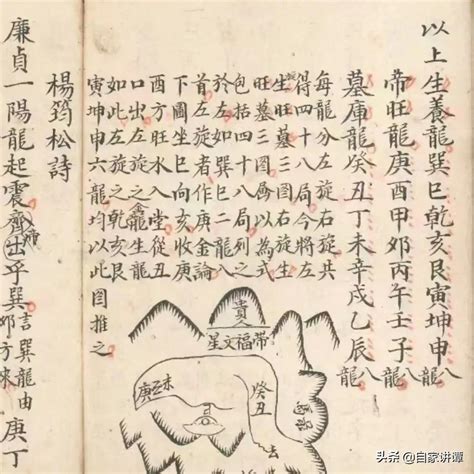 以上生養龍巽巳乾亥艮寅坤申八龍
帝旺龍庚酉甲卯丙午壬子八龍
墓庫龍癸丑丁未辛戌乙辰八龍
每龍分左旋右旋共
得四十八局今將左
旋生旺墓三图右旋生
旺墓三圖局以為式
包括四十八局列之
於左如巽巳二龍八
首左旋者作庚金論
下圖坐巳向亥收庚
酉方旺水入堂從丑
口出左旋之龍生龍
如此左旋之乾亥艮
寅坤申六龍均以此圖推之
貴人
帶福文星
癸丑
庚
去
楊筠松詩
廉貞一陽龍起震齊出乎巽言巽龍由卯方來庚丁
头条 @自家讲谭